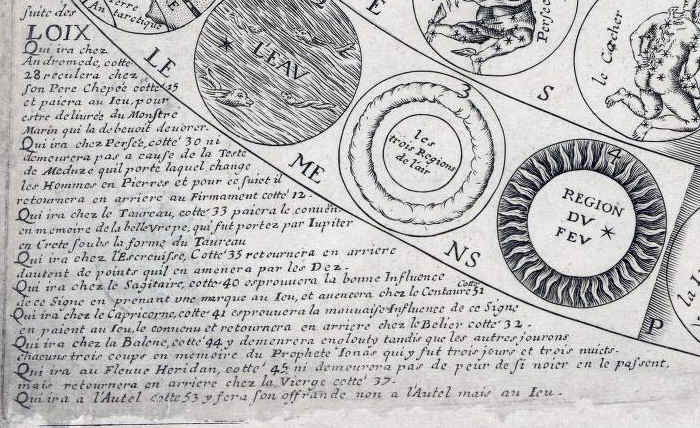 Terre
Antarctique
suite des
LOIX
Qui ira chez
Andromede, cotte
28 reculera chez
son Pere Chepée cotté 15
et paiera au Ieu, pour
estre deliurée du Monstre
Marin qui la debuoit deuorer.
Qui ira chez Persée, cotté 30 ni
demeurera pas a cause de la Teste
de Meduze quil porte laquel change
les Hommen en Pierres et pour ce suiet il
retournera en arriere au Firmament cotté 12.
Qui ira chez le Taureau, cotté 33 paiera le conuenu
en memoire de la belle vrope, qui fut portez par Iupiter
en Crete soubs la forme du Taureau
Qui ira chez l'Escreuisse, Cotté 35 retournera en arriere
dautent de points quil en amenera par les Dez.
Qui ira chez le Sagitaire, cotté 40 esprouuera la bonne Influence
de ce Signe en prenant vne marque au Ieu, et auencera chez le Centaure Cotté 51
Qui ira chez le Capricorne, cotté 41 esprouuera la mauuaise Influence de ce Signe
en paient au Ieu, le conuenu et retournera en arriere chez le Belier cotté 32.
Qui ira chez la Balene, cotté 44 y demeurera
tandis que les autres jouront
chacuns trois coups en memoire du Prophete Ionas qui y fut trois jours et trois nuicts.
Qui ira au Fleuue Heridan, cotté 45 ni demeurera pas de peur de si noier en le passent,
mais retournera en arriere chez la Vierge cotté 37.
Qui ira à l'Autel cotté 53 y fera son offrande non a l'Autel mais au Ieu.
LE
ME
NS
E
S
P
2
L'EAV
3
les
trois Regions
de l'air
4
REGION
DV
FEV
Persée
le Cocher